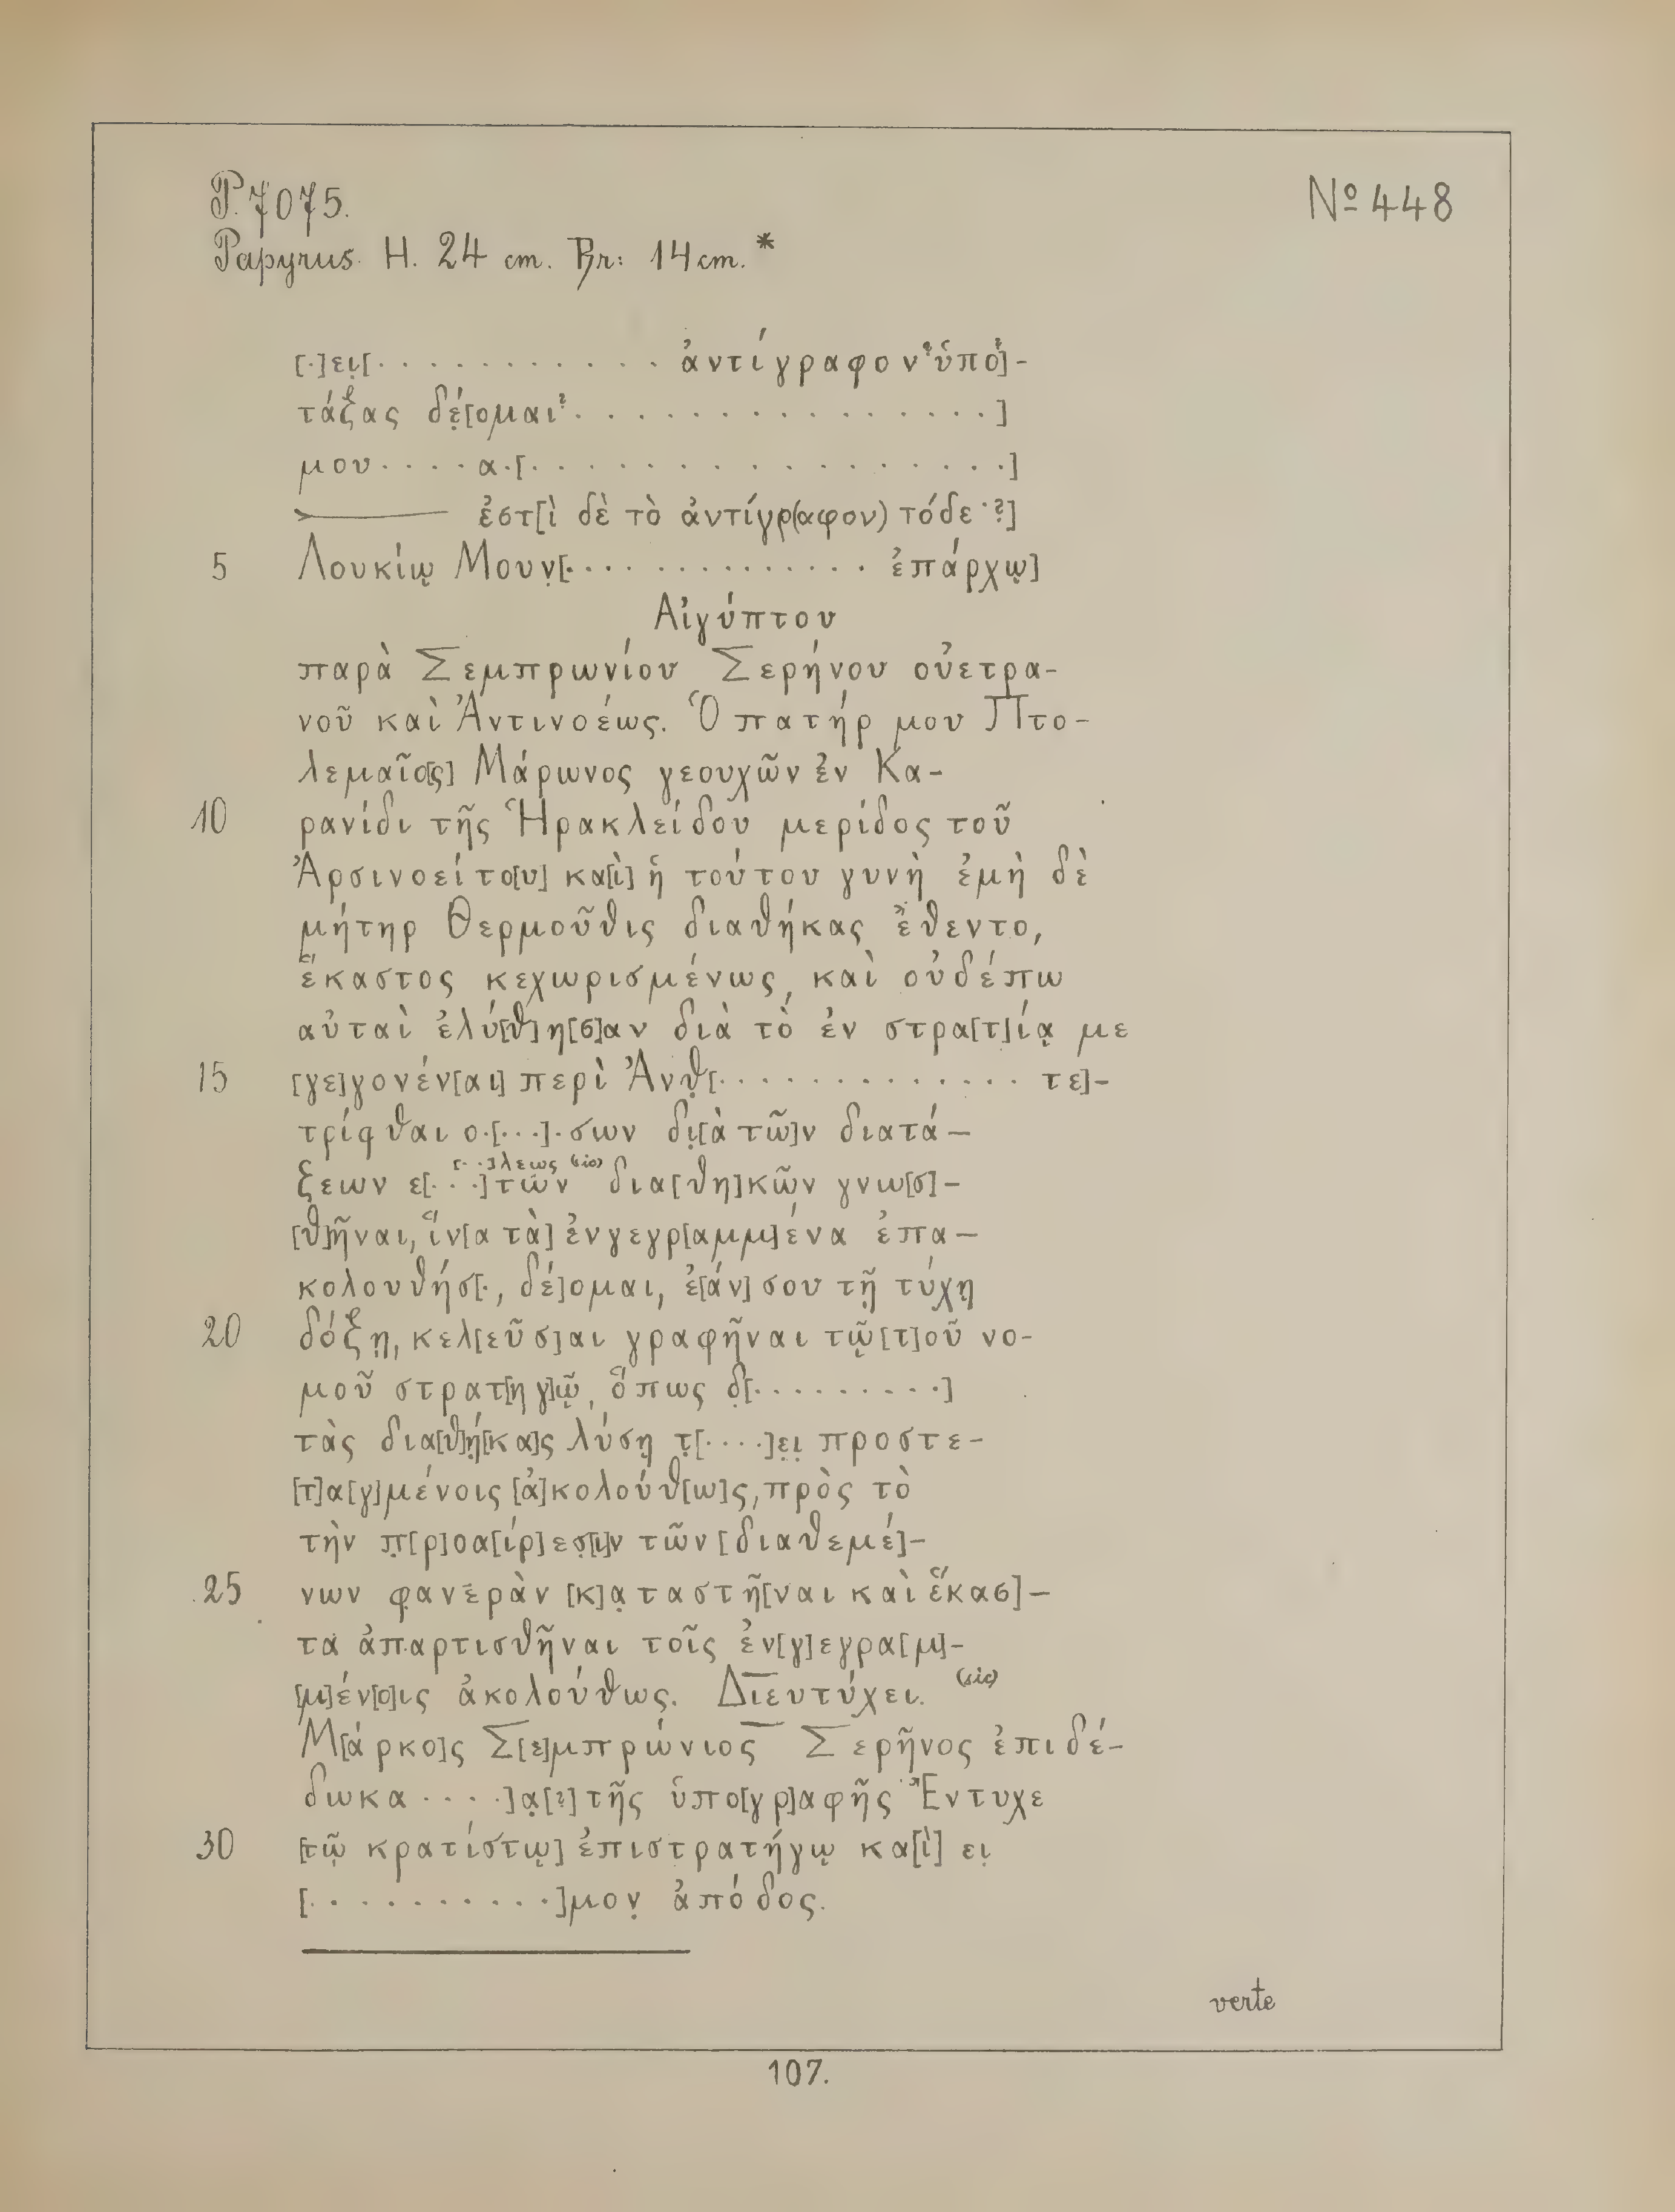 P. 7075. Nº 448
Papyrus. H. 24 cm. Br: 14 cm. *
[·]ει̣[· · · · · · · · · · · ἀντίγραφον? ὑπο?]-
τάξας δέ̣[ομαι? · · · · · · · · · · · · · · ·]
μου · · · · α·[· · · · · · · · · · · · · · · · ·]
>——— ἐστ[ὶ δὲ τὸ ἀντίγρ(αφον) τόδε·?]
5 Λουκίῳ Μουν̣[· · · · · · · · · · · · · · ἐπάρχῳ]
Αἰγύπτου
παρὰ Σεμπρωνίου Σερήνου οὐετρα-
νοῦ καὶ Ἀντινοέως. Ὁ πατήρ μου Πτο-
λεμαῖο[ς] Μάρωνος γεουχῶν ἐν Κα-
10 ρανίδι τῆς Ἡρακλείδου μερίδος τοῦ
Ἀρσινοείτο[υ] κα[ὶ] ἡ τούτου γυνὴ ἐμὴ δὲ
μήτηρ Θερμοῦθις διαθήκας ἔθεντο,
ἕκαστος κεχωρισμένως, καὶ οὐδέπω
αὐταὶ ἐλύ[θ]η[σ]αν διὰ τὸ ἐν στρα[τ]ίᾳ με
15 [γε]γονέν[αι] περὶ Ἀνθ̣[· · · · · · · · · · · · · τε]-
τρίφθαι ο·[· · ·]·σων δι̣[ὰ τῶ]ν διατά-
[· ·]λεως (sic)
ξεων ε[· · ·]τῶν δια[θη]κῶν γνω[σ]-
[θ]ῆναι, ἵν[α τὰ] ἐνγεγρ[αμμ]ένα ἐπα-
κολουθήσ[·, δέ]ομαι, ἐ[άν] σου τῇ τύχῃ
20 δόξῃ, κελ[εῦσ]αι γραφῆναι τῷ [τ]οῦ νο-
μοῦ στρατ[ηγ]ῷ, ὅπως δ̣[· · · · · · · · ·]
τὰς δια[θ]ή̣[κα]ς λύσῃ τ̣[· · · ·]ε̣ι̣ προστε-
[τ]α[γ]μένοις [ἀ]κολούθ[ω]ς, πρὸς τὸ
τὴν π̣[ρ]οα[ίρ]εσ̣[ι]ν τῶν [διαθεμέ]-
25 νων φανερὰν [κ]α̣ταστῆ[ναι καὶ ἕκασ]-
τα ἀπαρτισθῆναι τοῖς ἐν[γ]εγρα[μ]-
[μ]έν[ο]ις ἀκολούθως. Διευτύχει. (sic)
Μ[άρκο]ς Σ[ε]μπρώνιος Σερῆνος ἐπιδέ-
δωκα · · · ·]α̣[?] τῆς ὑπο[γρ]αφῆς Ἔντυχε
30 [τῷ κρατίστῳ] ἐπιστρατήγῳ κα[ὶ] ει̣
[· · · · · · · · · ·]μον̣ ἀπόδος.
verte
107.